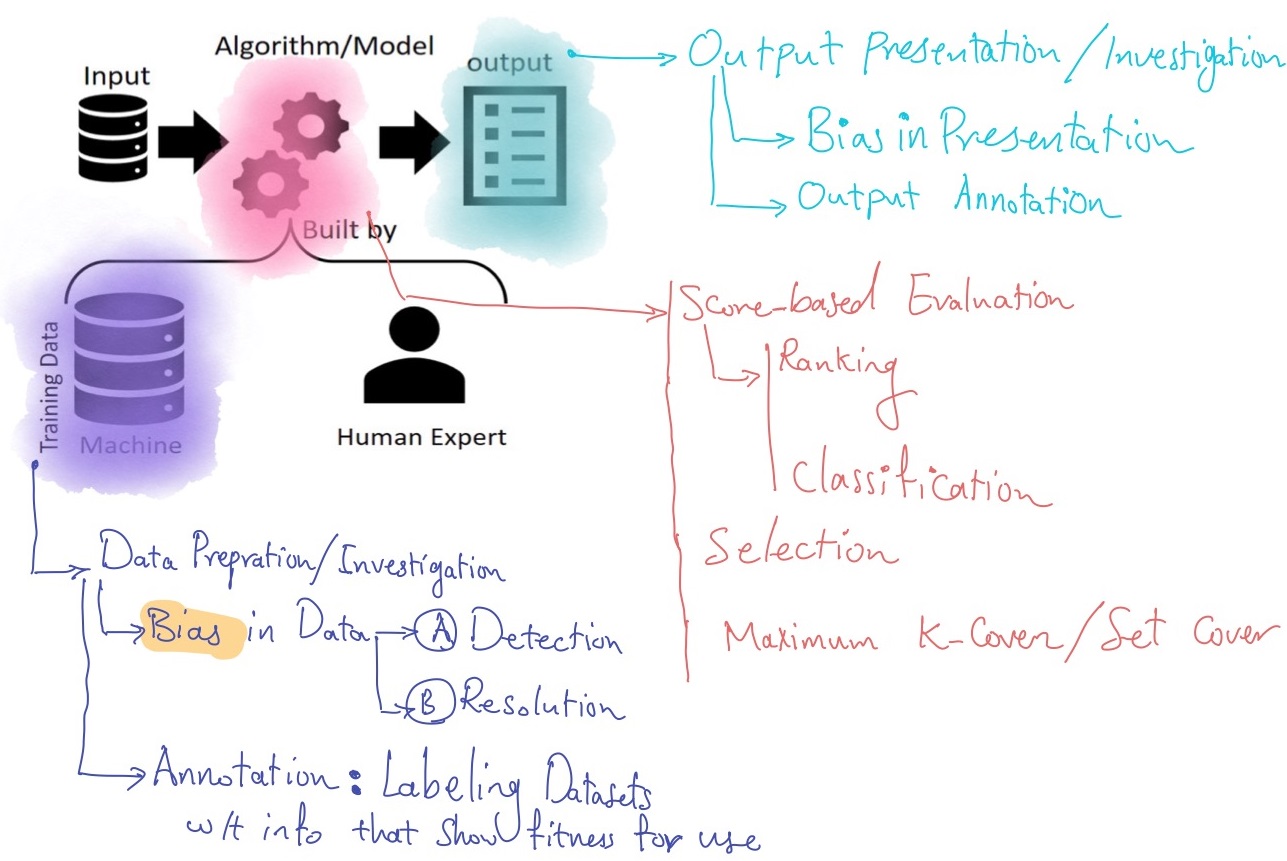 Algorithm/Model
Input
output
Built by
Training Data
Machine
Human Expert
Output Presentation/Investigation
Bias in Presentation
Output Annotation
Score-based Evaluation
Ranking
Classification
Selection
Maximum K-Cover/Set Cover
Data Prepration/Investigation
Bias in Data
A Detection
B Resolution
Annotation: Labeling Datasets
w/t info that show fitness for use